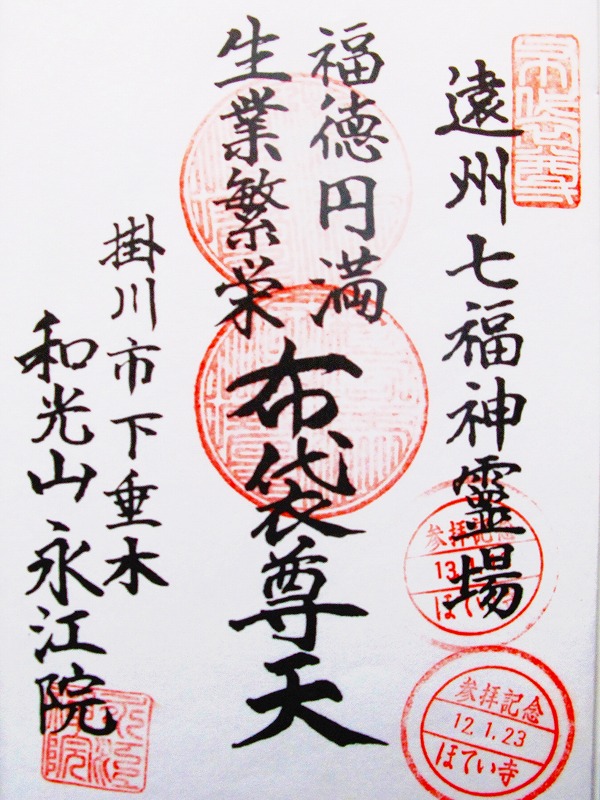 遠州七福神霊場
福徳円満
生業繁栄
布袋尊天
掛川市下垂木
和光山永江院
布袋尊
参拝記念
ほてい
参拝記念
12.1.23
ほてい寺
永江院